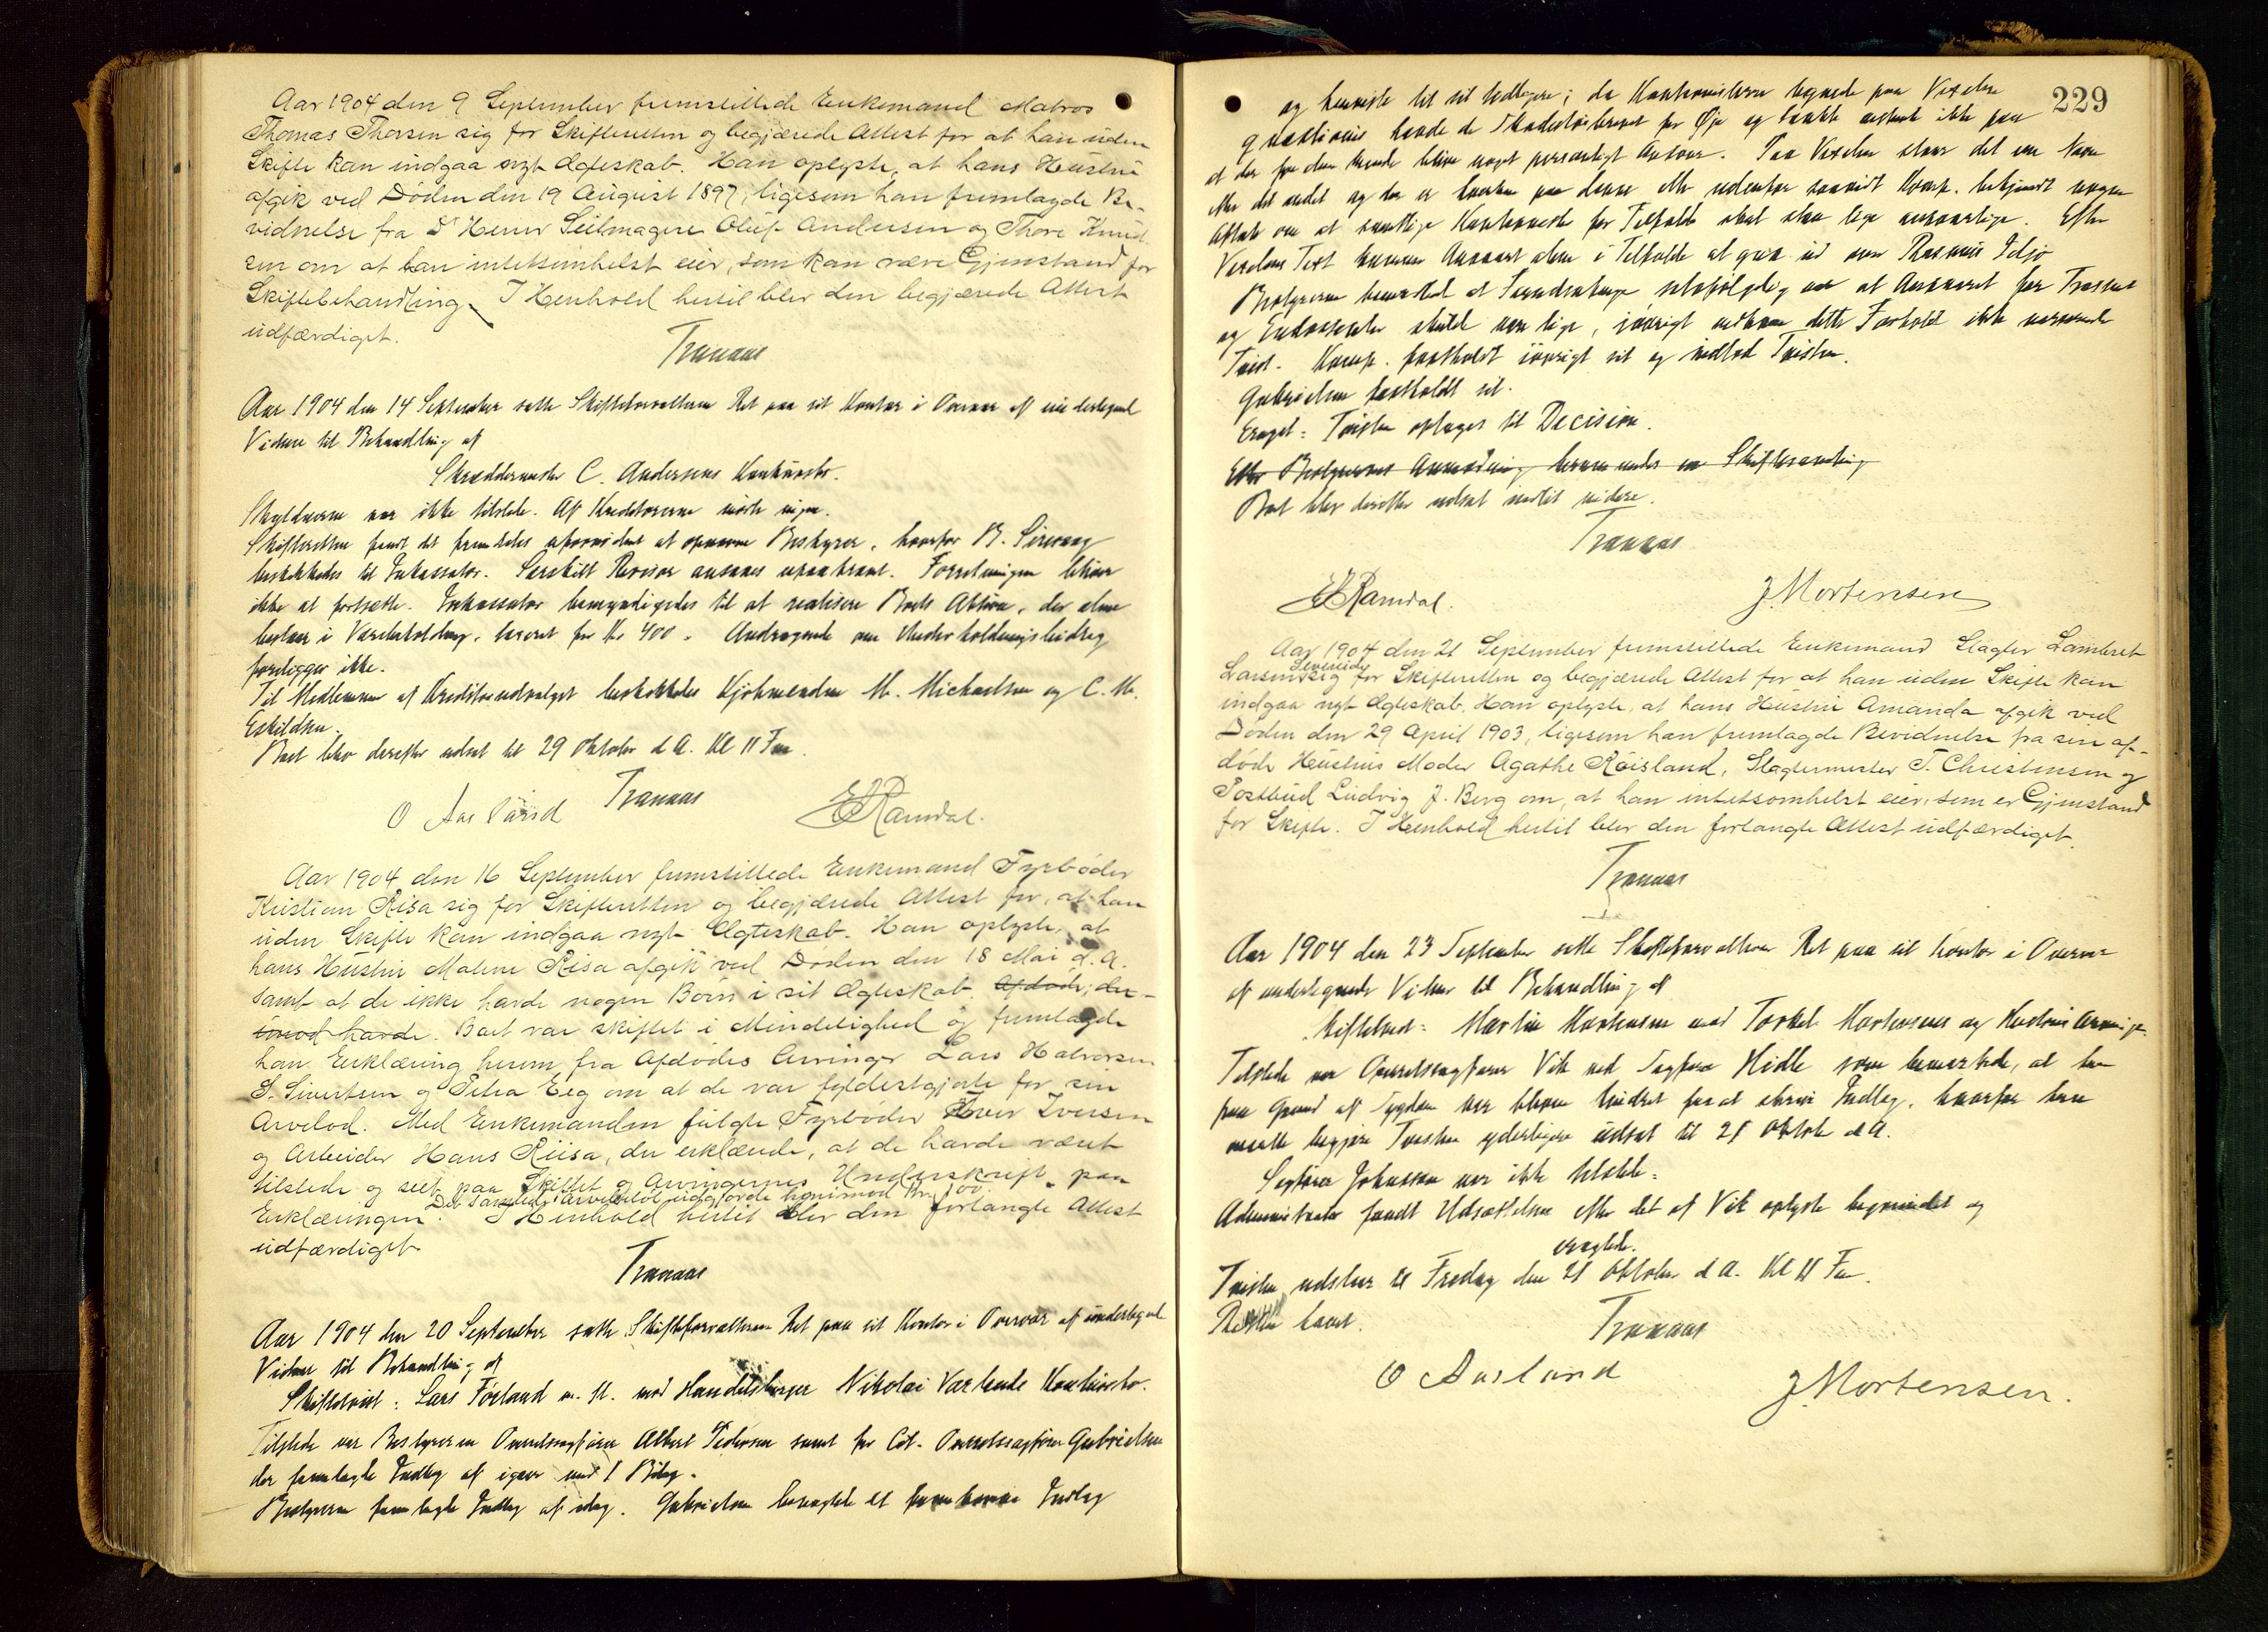 Aar 1904 den 9 September fremstillede Enkemand Matros
Thomas Thorsen sig for Skifteretten og begjærede Attest for at han uden
Skifte kan indgaa nyt Ægteskab. Han oplyste, at hans Hustru
afgik ved Døden den 19 August 1897, ligesom han fremlagde Be-
vidnelse fra Dhrr Herrer Seilmagere Oluf Andersen og Thore Knud-
sen om at han intetsomhelst eier, som kan være Gjenstand for
Skiftebehandling. I Henhold hertil blev den begjærede Attest
udfærdiget.
Tranaas
Aar 1904 den 14 September satte Skifteforvalteren Ret paa sit Kontor i Overvær af undertegnede
Vidner til Behandling af
Skræddermester C. Andersens Konkursbo.
Skyldneren var ikke tilstede. Af Kreditorerne mødte ingen.
Skifteretten fandt det fremdeles ufornødent at opnævne Bestyrer, hvorfor B. Sirevaag
beskikkedes til Inkassator. Særskilt Revisor ansaaes upaakrævet. Forretningen bliver
ikke at fortsætte. Inkassator bemyndigedes til at realisere Boets Aktiva, der alene
bestaar i Varebeholdning, taxeret for Kr 400. Andragende om Underholdningsbidrag
foreligger ikke.
Til Medlemmer af Kreditorudvalget beskikkedes Kjøbmændene M. Michaelsen og C. M.
Eskildsen.
Boet blev derefter udsat til 29 Oktober d A. Kl 11 Fm.
O Aasland Tranaas E Ramdal.
Aar 1904 den 16 September fremstillede Enkemand Fyrbøder
Kristian Risa sig for Skifteretten og begjærede Attest for, at han
uden Skifte kan indgaa nyt Ægteskab. Han oplyste, at
hans Hustru Malene Risa afgik ved Døden den 18 Mai d. A.
samt at de ikke havde nogen Børn i sit Ægteskab. Afdøde, der-
imod havde. Boet var skiftet i Mindelighed og fremlagde
han Erklæring herom fra Afdødes Arvinger Lars Halvorsen
S. Sivertsen og Petra Eeg om at de var fyldestgjorte for sin
Arvelod. Med Enkemanden fulgte Fyrbøder Iver Iversen
og Arbeider Hans Riisa, der erklærede, at de havde været
tilstede og seet paa Skiftet og Arvingernes Underskrift paa
Det samlede Arvebeløb udgjorde henimod Kr. 100.
Erklæringen. I Henhold hertil blev den forlangte Attest
udfærdiget.
Tranaas
Aar 1904 den 20 September satte Skifteforvalteren Ret paa sit Kontor i Overvær af undertegnede
Vidner til Behandling af
Skiftetvist: Lars Føiland m. fl. mod Handelsborger Nikolai Varlands Konkursbo.
Tilstede var Bestyreren Overretssagfører Albert Pedersen samt for Cit. Overretssagfører Gabrielsen
der fremlagde Indlæg af igaar med 1 Bilag.
Bestyreren fremlagde Indlæg af idag. Gabrielsen benægtede det fremkomne Indlæg
229
og henviste til sit tidligere; da Kautionisterne tegnede paa Vexelen
quæstionis havde de Skadesløsbrevet for Øie og tænkte ikke paa
at der for dem kunde blive noget personligt Ansvar. Paa Vexelen staar det ene Navn
efter det andet og der er hverken paa denne eller udenfor saavidt Komp. bekjendt nogen
Aftale om at samtlige Kautionister for Tilfælde skal staa lige ansvarlige. Efter
Vexelens Text kommer Ansvaret alene i Tilfælde at gaa ud over Rasmus
Bestyreren bemærkede at Forudsætningen selvfølgelig var at Ansvaret for Trassent
og Endossenter skulde være lige, iøvrigt vedkom dette Forhold ikke nærværende
Tvist. Komp. fastholdt iøvrigt sit og indlod Tvisten.
Gabrielsen fastholdt sit.
Eragtet: Tvisten optages til Decision.
Efter Bestyrerens Anmodning berammedes en Skiftesamling
Boet blev derefter udsat indtil videre.
Tranaas
E Ramdal. J. Mortensen
Aar 1904 den 21 September fremstillede Enkemand Slagter Lambret
Severeide
Larsen sig for Skifteretten og begjærede Attest for at han uden Skifte kan
indgaa nyt Ægteskab. Han oplyste, at hans Hustru Amanda afgik ved
Døden den 29 April 1903, ligesom han fremlagde Bevidnelse fra sin af-
døde Hustrus Moder Agathe Røisland, Slagtermester T. Christensen og
Postbud Ludvig J. Berg om, at han intetsomhelst eier, som er Gjenstand
for Skifte. I Henhold hertil blev den forlangte Attest udfærdiget.
Tranaas
Aar 1904 den 23 September satte Skifteforvalteren Ret paa sit Kontor i Overvær
af undertegnede Vidner til Behandling af
Skiftetvist: Martin Mortensen mod Torkel Mortensens og Hustrus Arvinger.
Tilstede var Overretssagfører Vik ved Sagfører Hidle som bemærkede, at han
paa Grund af Sygdom var bleven hindret for at skrive Indlæg, hvorfor han
maatte begjære Tvisten yderligere udsat til 21 Oktober d A.
Sagfører Johnsson var ikke tilstede.
Administrator fandt Udsættelsen efter det af Vik oplyste begrundet og
eragtede.
Tvisten udstaar til Fredag den 21 Oktober d A. Kl 11 Fm.
Retten hævet.
Tranaas
O Aasland J. Mortensen.